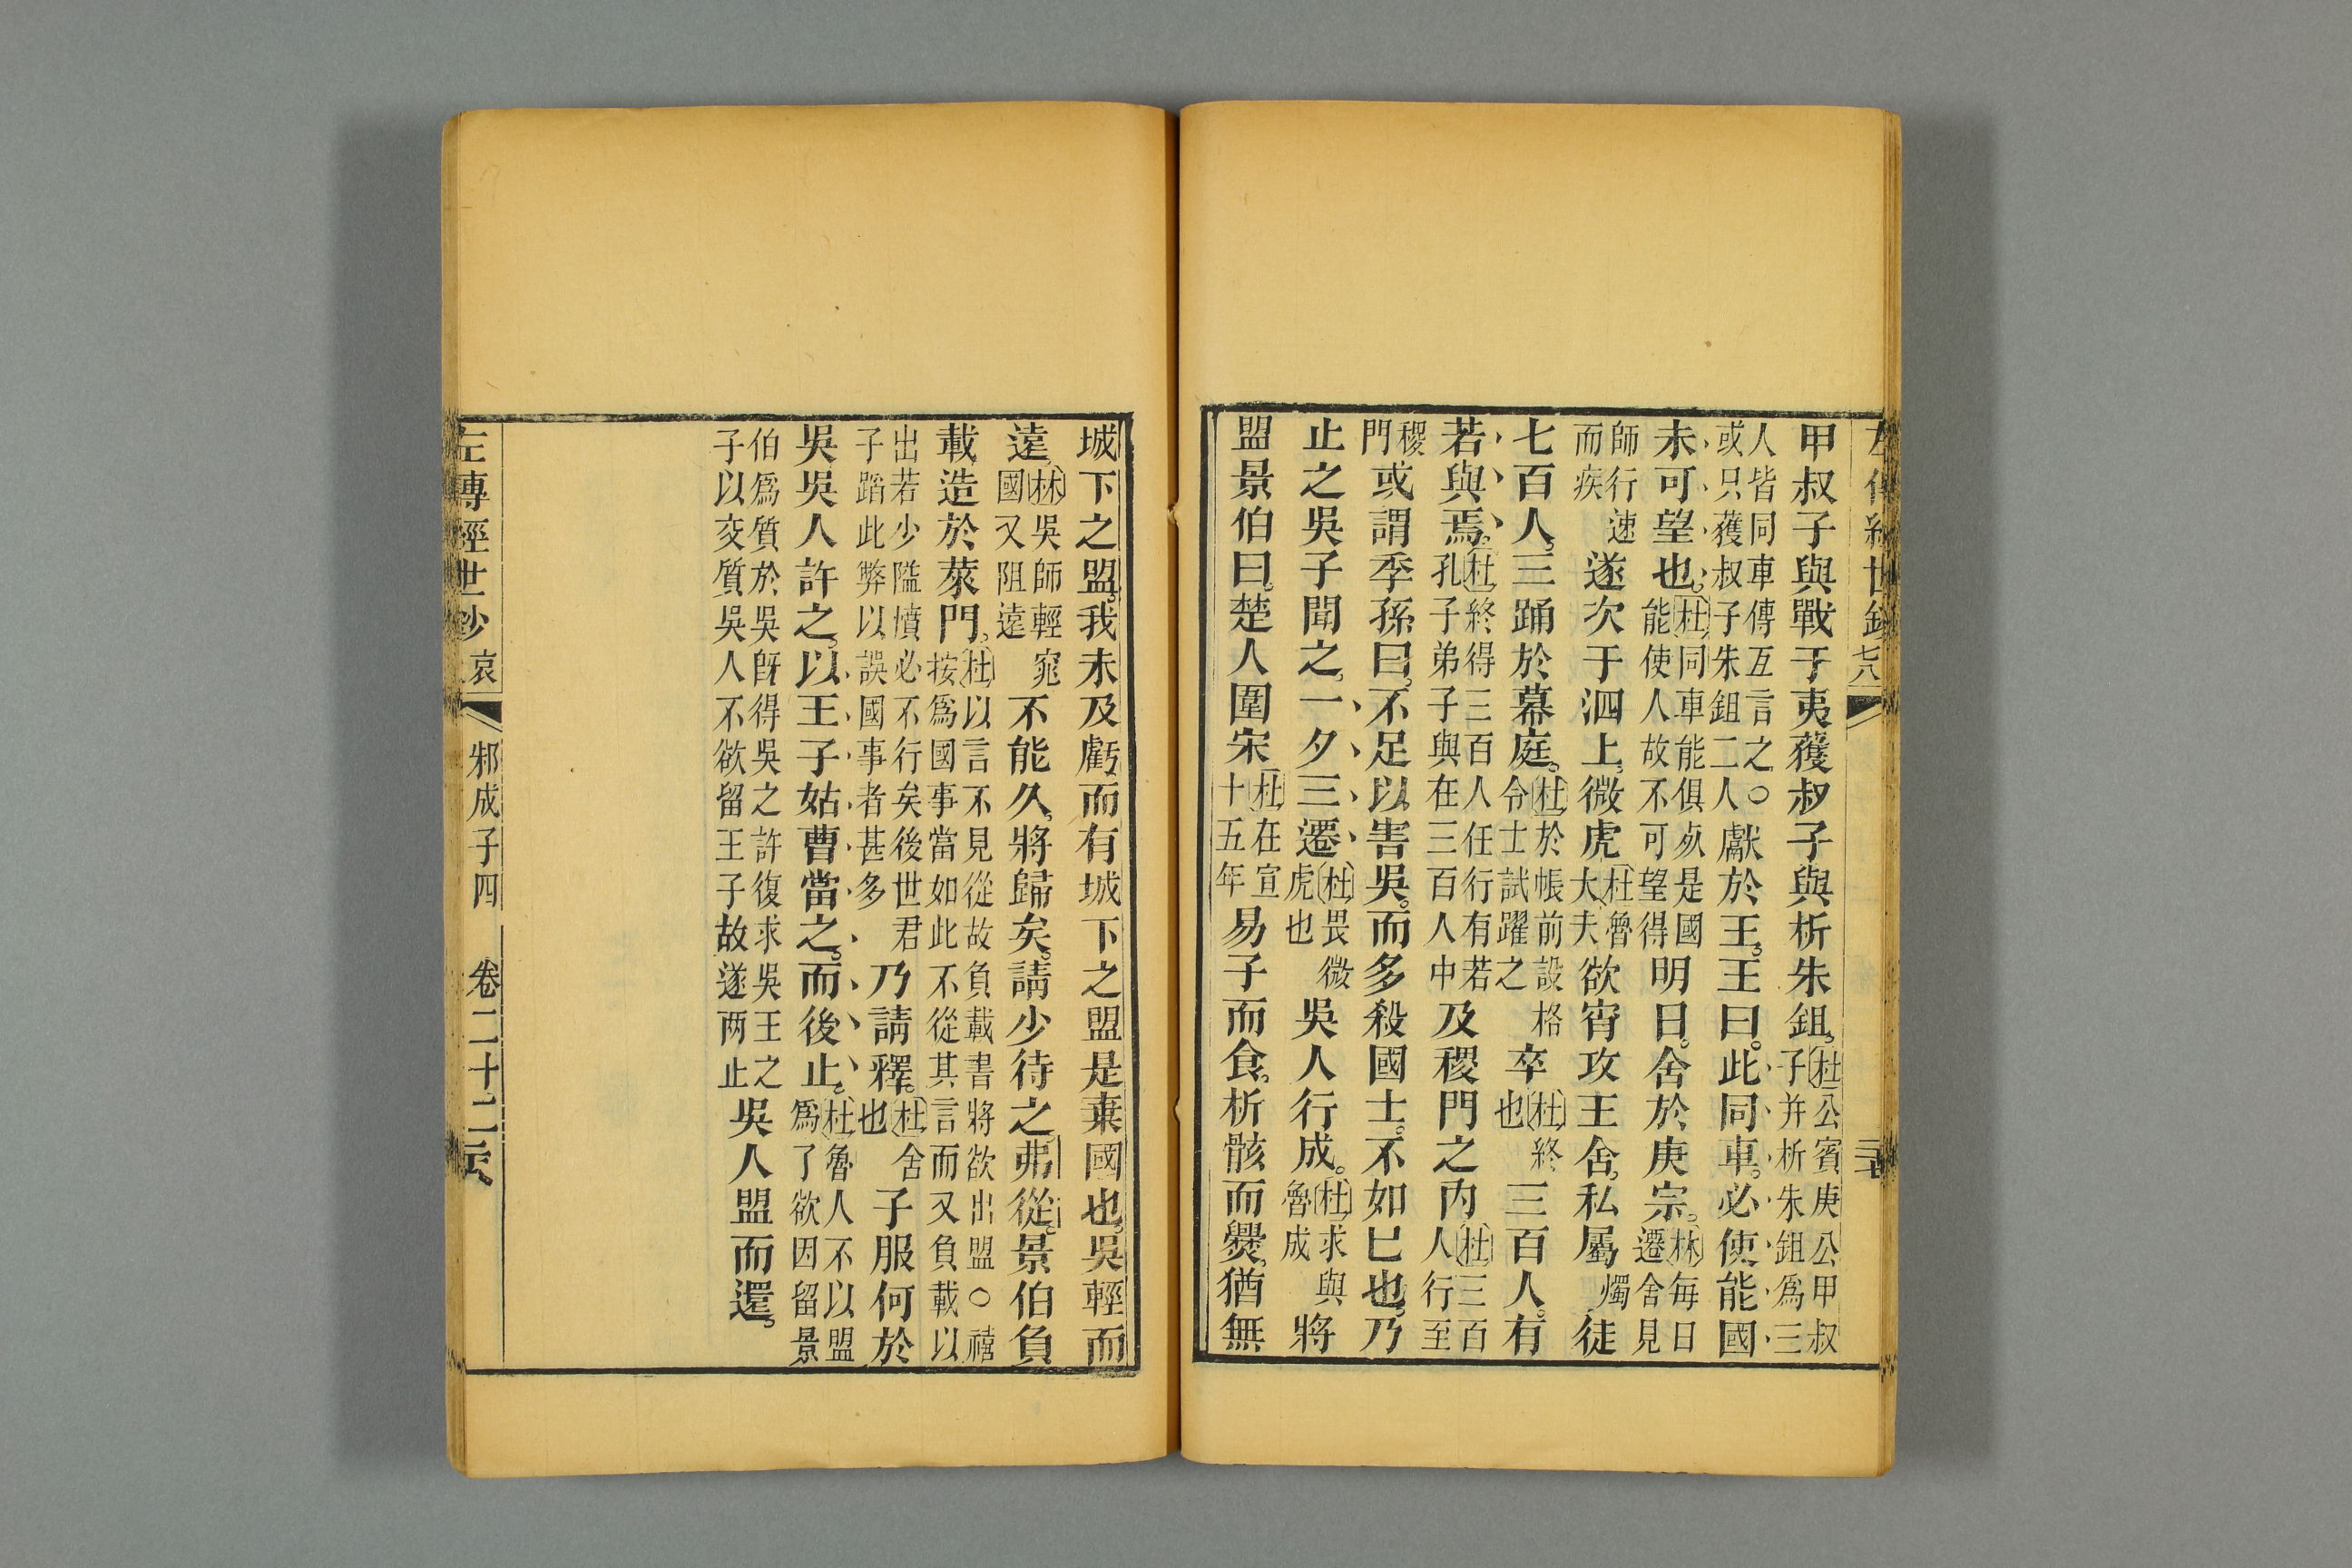 甲叔子與戰于夷獲叔子與析朱鉏杜公賓庚公甲叔子并析朱鉏為三
人皆同車傳互言之○或只獲叔子朱鉏二人獻於王王曰此同車必使能國
未可望也杜同車能俱死是國能使人故不可望得明日舍於庚宗林每日遷舍見
師行速而疾遂次于泗上微虎杜魯大夫欲宵攻王舍私屬燭徒
七百人三踊於幕庭杜於帳前設格令士試躍之卒杜終也三百人有
若與焉杜終得三百人任行有若孔子弟子與在三百人中及稷門之內杜三百人行至
稷門或謂季孫曰不足以害吳而多殺國士不如已也乃
止之吳子聞之一夕三遷杜畏微虎也吳人行成杜求與魯成將
盟景伯曰楚人圍宋杜在宣十五年易子而食析骸而爨猶無
城下之盟我未及虧而有城下之盟是棄國也吳輕而
遠林吳師輕窕國又阻遠不能久將歸矣請少待之弗從景伯負
載造於萊門杜以言不見從故負載書將欲出盟○禧按為國事當如此不從其言而又負載以
出若少隘墳必不行矣後世君子蹈此弊以誤國事者甚多乃請釋杜舍也子服何於
吳吳人許之以王子姑曹當之而後止杜魯人不以盟為了欲因留景
伯為質於吳旣得吳之許復求吳王之子以交質吳人不欲留王子故遂两止吳人盟而還
左傳經世鈔 哀 邾成子四 卷二十二